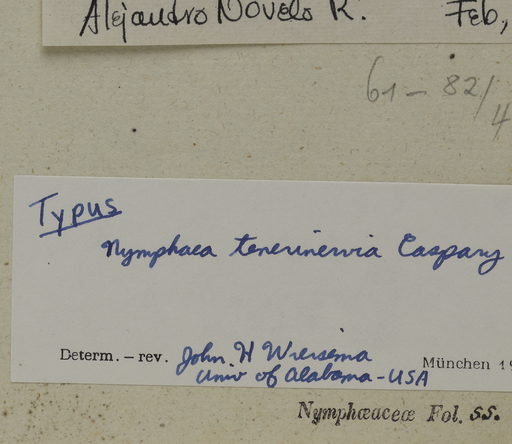 Alejandro Novelo R. Feb,
61-82/4
Typus
Nymphaea tenerinervia Caspary
Determ. - rev. John H Wiersema München 19
Univ of Alabama - USA
Nymphæaceæ Fol. 55.